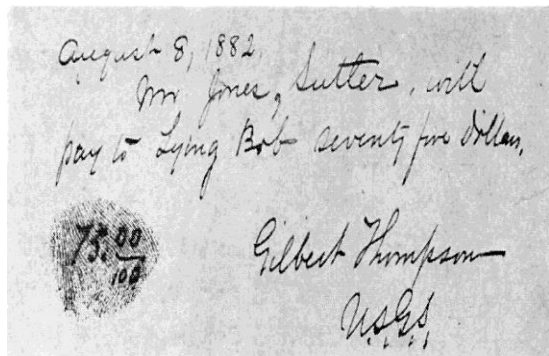 August 8, 1882,
Mr Jones, Sutler, will
pay to Lying Bob seventy five dollars.
75.00/100
Gilbert Thompson
U.S.G.S.